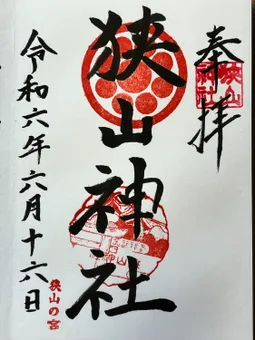 奉拝
狭山神社
狭山神社
令和六年六月十六日
狭山の宮